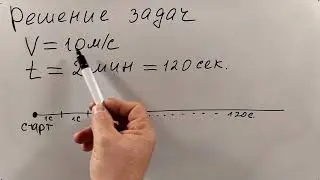 Решение задач
V = 10 м/с
t = 2 мин = 120 сек.
старт 1с 1с 120 с